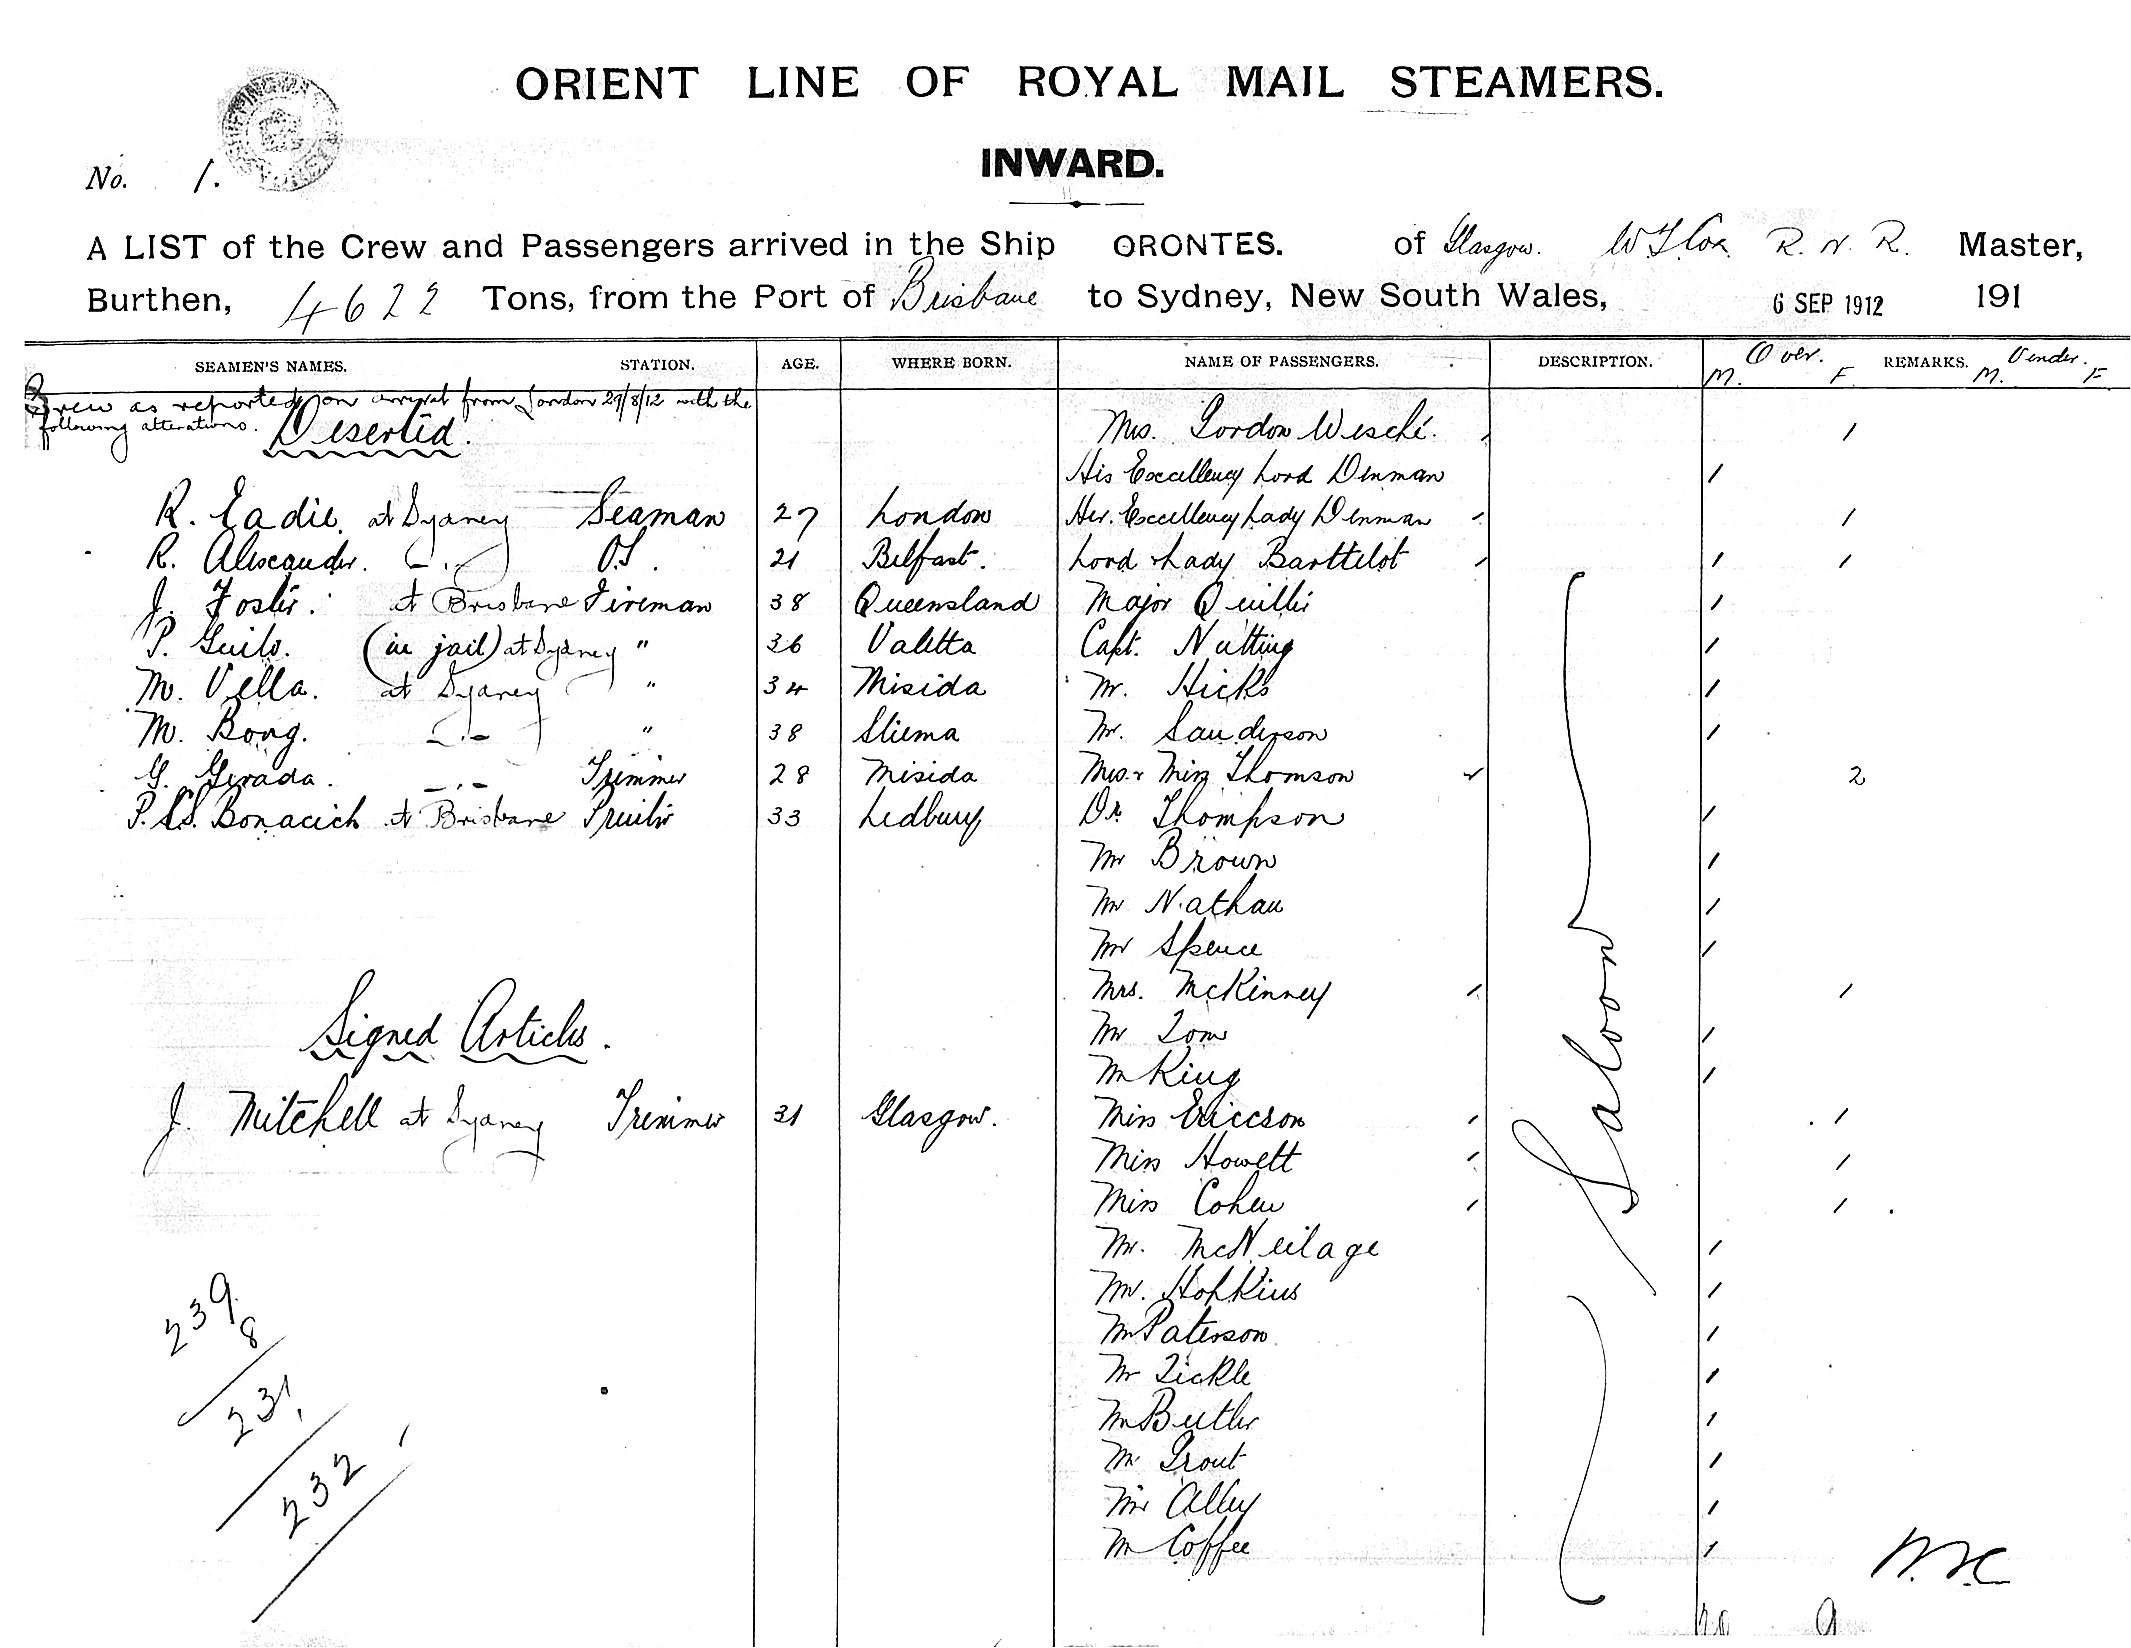 ORIENT LINE OF ROYAL MAIL STEAMERS.
INWARD.
No. 1.
A LIST of the Crew and Passengers arrived in the Ship ORONTES. of Glasgow. R. N. R. Master,
Burthen, 4622 Tons, from the Port of Brisbane to Sydney, New South Wales, 6 SEP 1912 191
SEAMEN'S NAMES. STATION. AGE. WHERE BORN. NAME OF PASSENGERS. DESCRIPTION. Over. REMARKS. Under.
M. F. M. F
Crew as reported on arrival from London 29/8/12 with the
following alterations. Deserted.
Mrs. Gordon Wesché. /
His Excellency Lord Denman /
R. Eadie. at Sydney Seaman 27 London Her. Excellency Lady Denman /
R. Alexander. " OS. 21 Belfast. Lord & Lady Barttelot / /
J. Foster. at Brisbane Fireman 38 Queensland Major Quillter /
P. Guilo. (in jail) at Sydney " 36 Valetta Capt. Nutting /
M. Vella. at Sydney " 34 Misida Mr. Hicks /
M. Bong. " " 38 Sliema Mr. Sanderson /
G. Gerada. " Trimmer 28 Misida Mrs. & Miss Thomson 2
P. S. S. Bonacich at Brisbane Printer 33 Ledbury Dr. Thompson /
Mr Brown /
Mr Nathan /
Mr Spence /
Mrs. McKinney /
Signed Articles.
Mr Tom /
Mr King /
J. Mitchell at Sydney Trimmer 31 Glasgow. Miss Ericcson /
Miss Howett /
Miss Cohen /
Saloon
Mr. McNeilage /
Mr. Hopkins /
Mr Paterson /
Mr Tickle /
Mr Butler /
Mr Grout /
Mr Alley /
Mr Coffee /
239
8
231
1
232